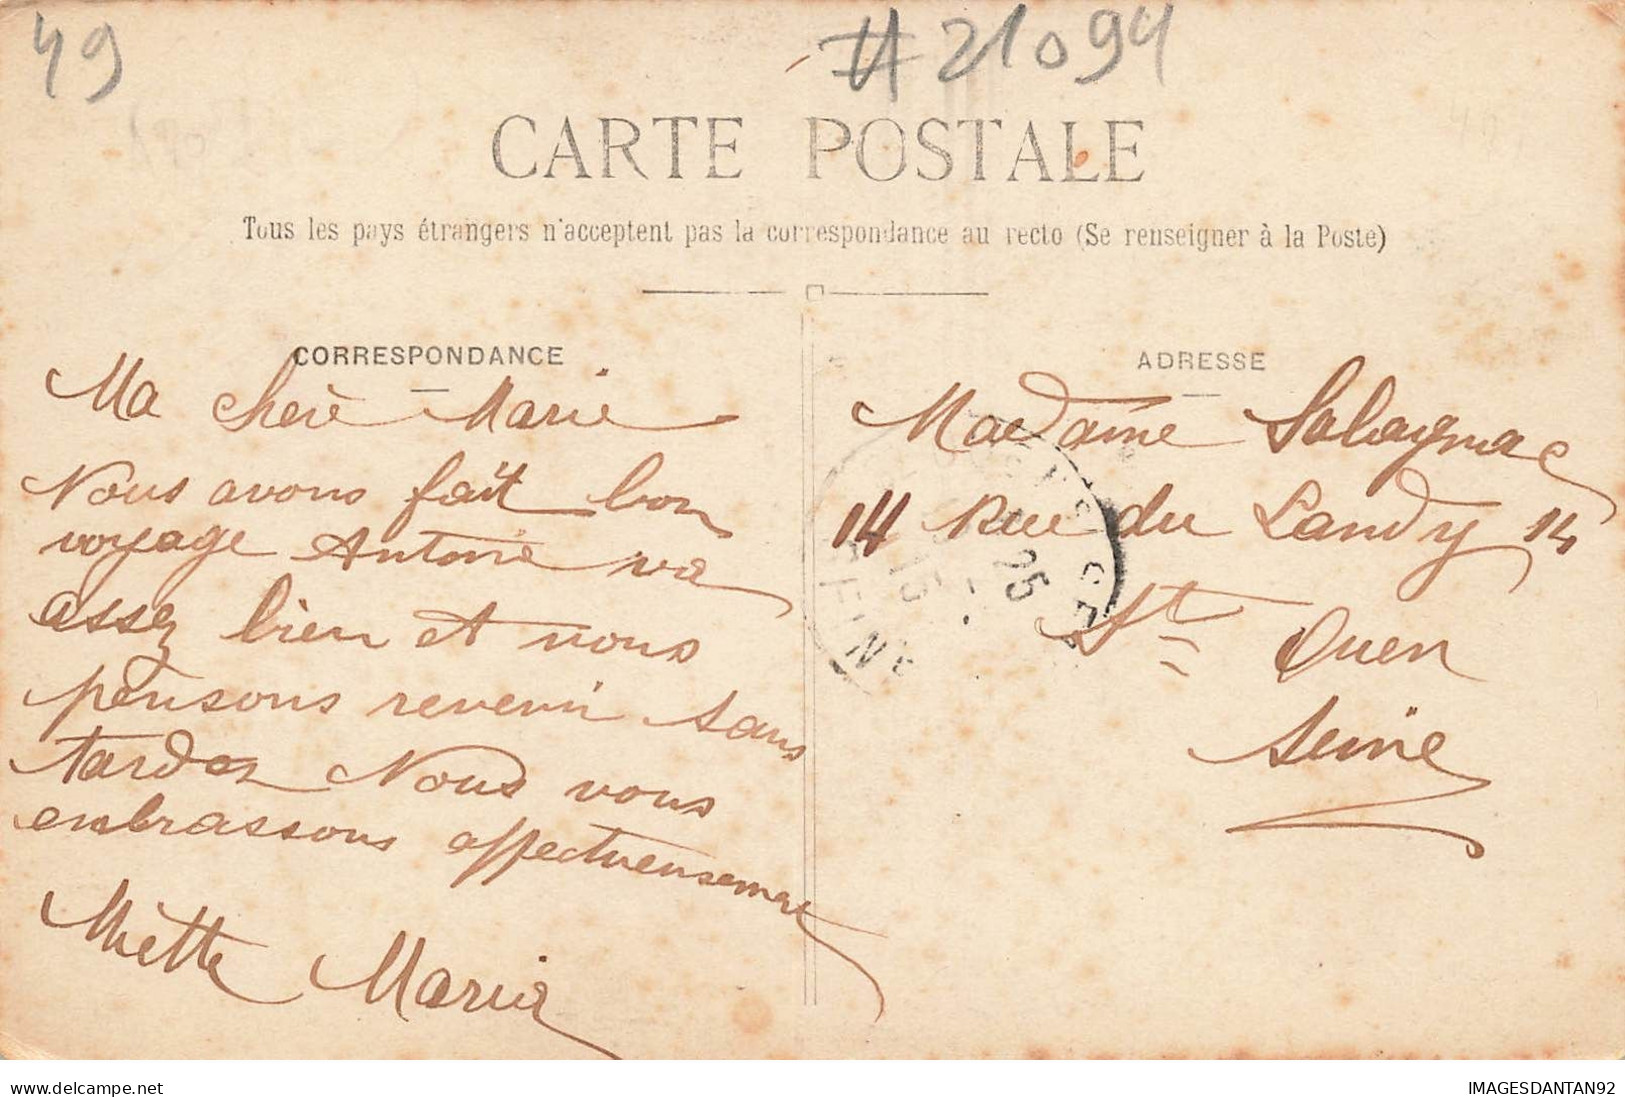 49
#21094
CARTE POSTALE
Tous les pays étrangers n'acceptent pas la correspondance au recto (Se renseigner à la Poste)
CORRESPONDANCE
Ma chère Marie
Nous avons fait bon
voyage Antoine va
assez bien et nous
pensons revenir sans
tarder Nous vous
embrassons affectueusement
Miette Maria
ADRESSE
Madame Salagnac
14 Rue du Landy 14
St Ouen
Seine
delcampe.net
IMAGESDANTAN92